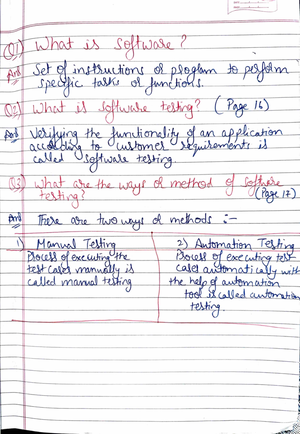 Q1) What is software?
Ans Set of instructions or program to perform
specific tasks or functions.
Q2) What is software testing? (Page 16)
Ans Verifying the functionality of an application
according to customer requirements is
called software testing.
Q3) What are the ways or method of software
testing? (Page 17)
Ans There are two ways or methods :-
1) Manual Testing
Process of executing the
test cases manually is
called manual testing
2) Automation Testing
Process of executing test
cases automatically with
the help of automation
tool is called automation
testing.